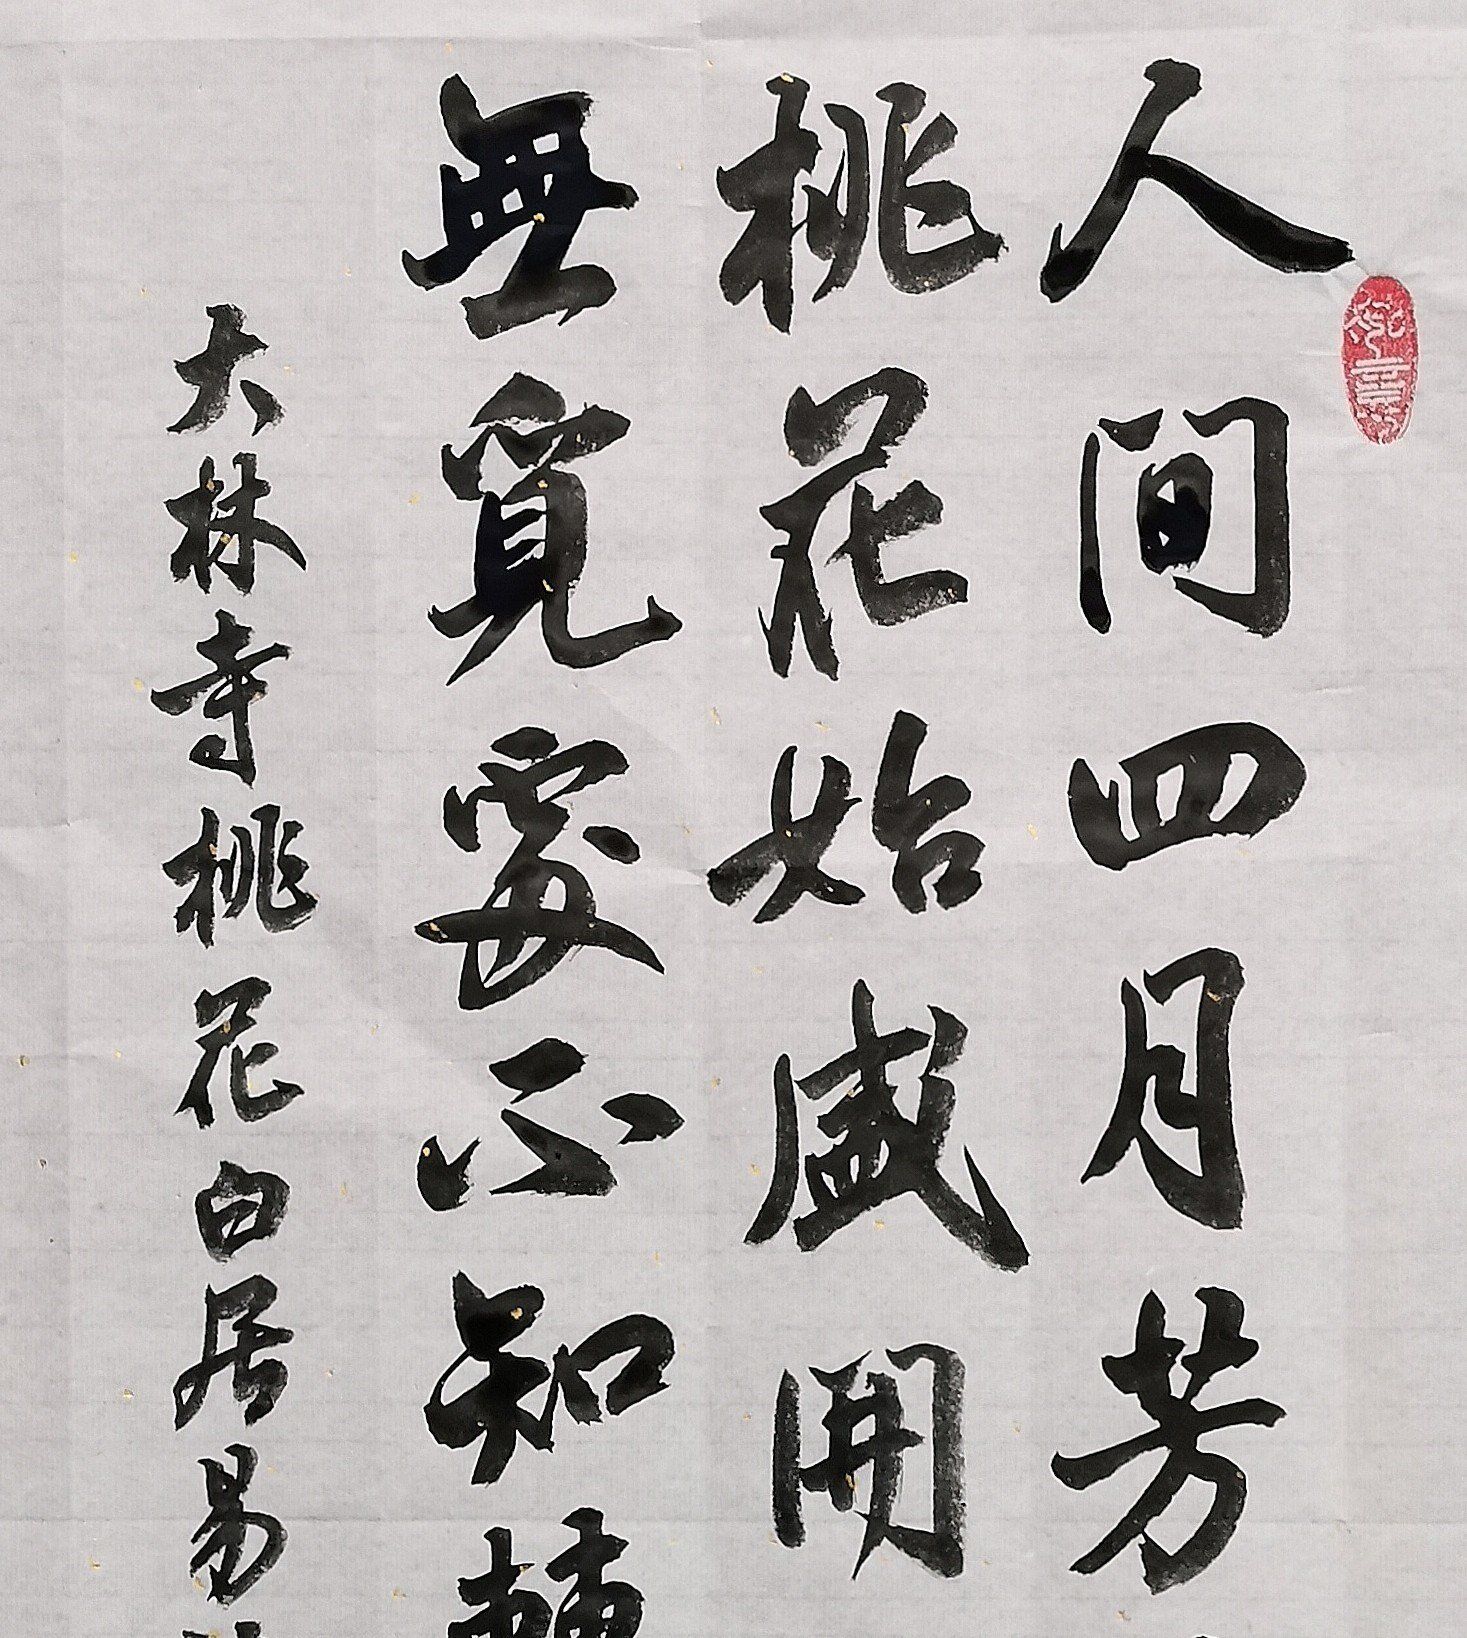 人間四月芳
桃花始盛開
無覓處不知轉
大林寺桃花白居易